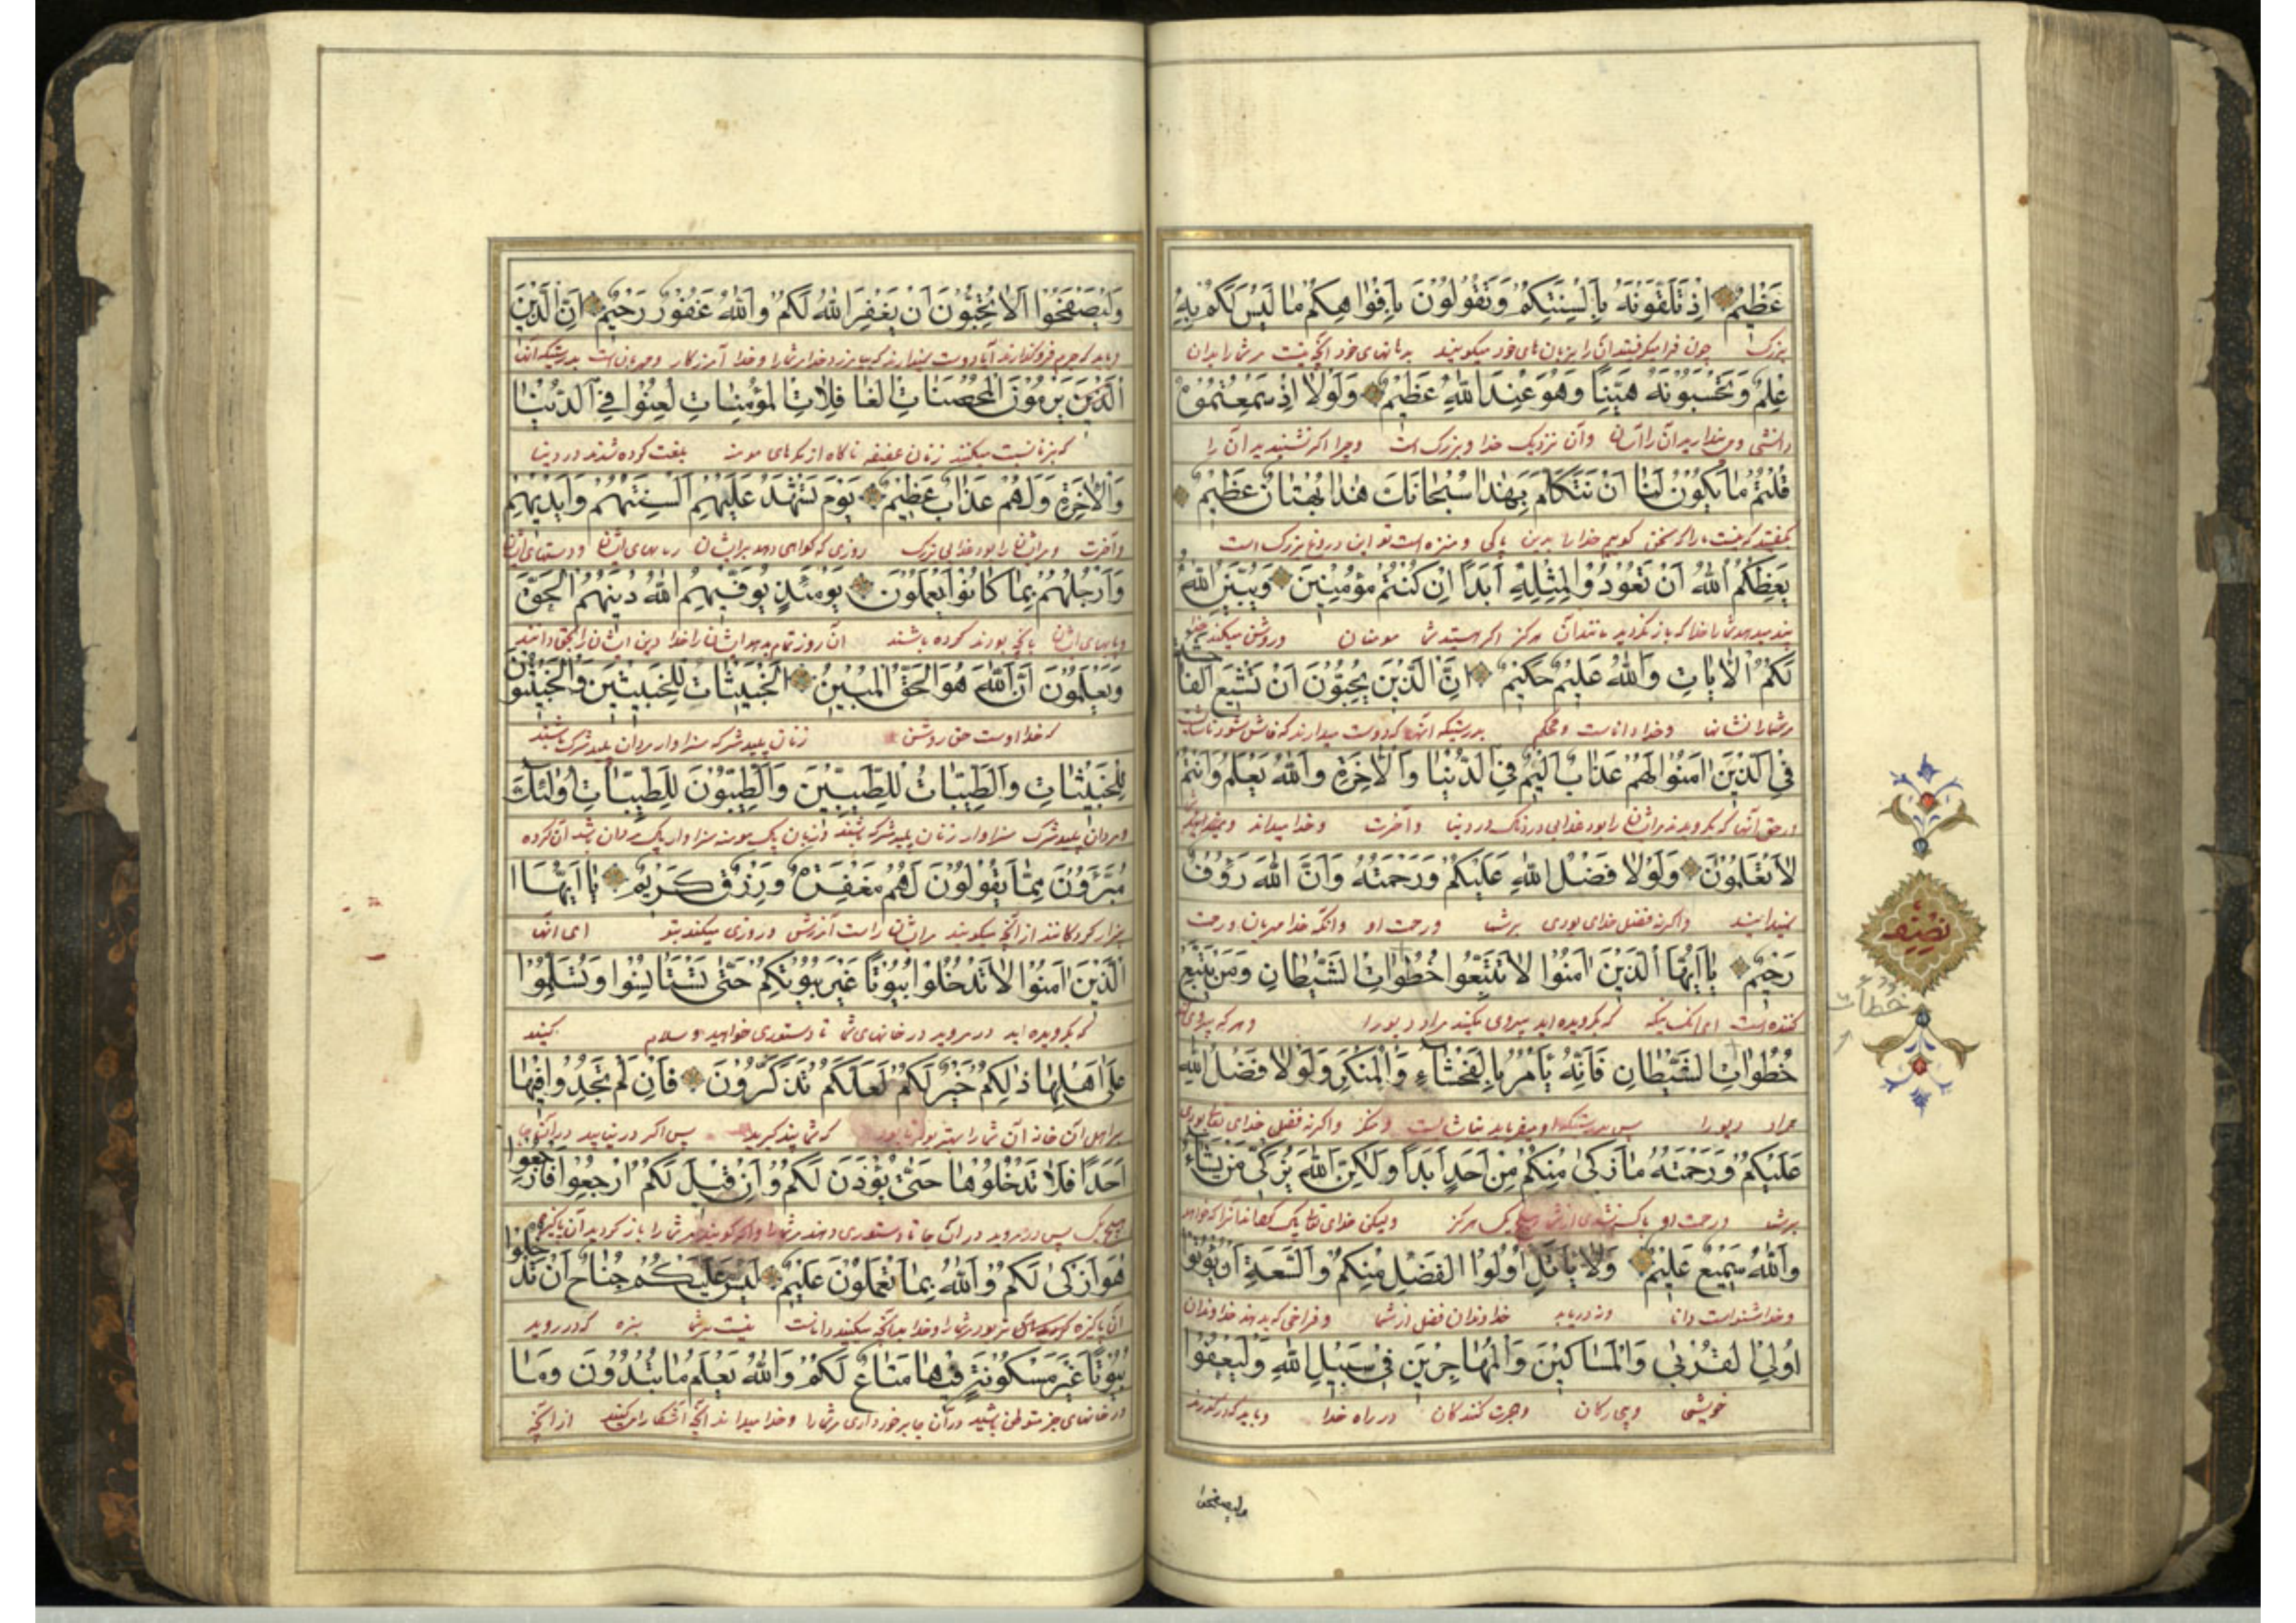 عَظِيمٌ اِذْ تَلَقَّوْنَهُ بِاَلْسِنَتِكُمْ وَتَقُولُونَ بِاَفْوَاهِكُمْ مَا لَيْسَ لَكُمْ بِهِ
بزرک چون فرا میکرفتید آن را بزبان های خود میکویید بدهانهای خود آنچه نیست مر شما را بدان
عِلْمٌ وَتَحْسَبُونَهُ هَيِّنًا وَهُوَ عِنْدَ اللّٰهِ عَظِيمٌ وَلَوْلَا اِذْ سَمِعْتُمُوهُ
دانشی و می پندارید آن را آسان و آن نزدیک خدا و بزرک است و چرا اکر نشنیدید آن را
قُلْتُمْ مَا يَكُونُ لَنَا اَنْ نَتَكَلَّمَ بِهٰذَا سُبْحَانَكَ هٰذَا بُهْتَانٌ عَظِيمٌ
که سخن کوییم خدا را بدین پاکی و منزه است تو این دروغ بزرک است
يَعِظُكُمُ اللّٰهُ اَنْ تَعُودُوا لِمِثْلِهِ اَبَدًا اِنْ كُنْتُمْ مُؤْمِنِينَ وَيُبَيِّنُ اللّٰهُ
پند میدهد شما را خدا که باز نکردید مانند آن هرکز اکر هستید شما مومنان و روشن میکند خدا
لَكُمُ الْاٰيَاتِ وَاللّٰهُ عَلِيمٌ حَكِيمٌ اِنَّ الَّذِينَ يُحِبُّونَ اَنْ تَشِيعَ الْفَاحِشَةُ
مر شما را نشانها و خدا داناست و محکم بدرستیکه آنها که دوست میدارند که فاش شود
فِي الَّذِينَ اٰمَنُوا لَهُمْ عَذَابٌ اَلِيمٌ فِي الدُّنْيَا وَالْاٰخِرَةِ وَاللّٰهُ يَعْلَمُ وَاَنْتُمْ
در حق آنها که بکرویدند مر ایشان را بود عذابی دردناک در دنیا و آخرت و خدا میداند و شما
لَا تَعْلَمُونَ وَلَوْلَا فَضْلُ اللّٰهِ عَلَيْكُمْ وَرَحْمَتُهُ وَاَنَّ اللّٰهَ رَؤُوفٌ
نمیدانید و اکر نه فضل خدای بودی بر شما و رحمت او و آنکه خدا مهربان و رحمت
رَحِيمٌ يَا اَيُّهَا الَّذِينَ اٰمَنُوا لَا تَتَّبِعُوا خُطُوَاتِ الشَّيْطَانِ وَمَنْ يَتَّبِعْ
کننده است ای آنکسانیکه که بکرویده اید پیروی مکنید مراد دیو را و هر که پیروی
خُطُوَاتِ الشَّيْطَانِ فَاِنَّهُ يَأْمُرُ بِالْفَحْشَاءِ وَالْمُنْكَرِ وَلَوْلَا فَضْلُ اللّٰهِ
مراد دیو را پس بدرستیکه او میفرماید و منکر و اکر نه فضل خدای تعالی بودی
عَلَيْكُمْ وَرَحْمَتُهُ مَا زَكٰى مِنْكُمْ مِنْ اَحَدٍ اَبَدًا وَلٰكِنَّ اللّٰهَ يُزَكِّي مَنْ يَشَاءُ
بر شما و رحمت او پاک نشدی از شما هیچ یک هرکز ولیکن خدای تعالی پاک کند آنرا که خواهد
وَاللّٰهُ سَمِيعٌ عَلِيمٌ وَلَا يَأْتَلِ اُولُوا الْفَضْلِ مِنْكُمْ وَالسَّعَةِ اَنْ يُؤْتُوا
و خدا شنواست دانا خداوندان فضل از شما و فراخی که بدهند خداوندان
اُولِي الْقُرْبٰى وَالْمَسَاكِينَ وَالْمُهَاجِرِينَ فِي سَبِيلِ اللّٰهِ وَلْيَعْفُوا
خویشی و هجرت کنندکان در راه خدا و باید که درکذرند
وليصفحوا
نصف
خطأت
وَلْيَصْفَحُوا اَلَا تُحِبُّونَ اَنْ يَغْفِرَ اللّٰهُ لَكُمْ وَاللّٰهُ غَفُورٌ رَحِيمٌ اِنَّ الَّذِينَ
و باید که جرم فروکذارند آیا دوست نمیدارند که بیامرزد خدا مر شما را و خدا آمرزکار و مهربان است بدرستیکه آنها
الَّذِينَ يَرْمُونَ الْمُحْصَنَاتِ الْغَافِلَاتِ الْمُؤْمِنَاتِ لُعِنُوا فِي الدُّنْيَا
که بزنا نسبت میکنند زنان عفیفه نا آکاه از مکرهای مومنه بلعنت کرده شدند در دنیا
وَالْاٰخِرَةِ وَلَهُمْ عَذَابٌ عَظِيمٌ يَوْمَ تَشْهَدُ عَلَيْهِمْ اَلْسِنَتُهُمْ وَاَيْدِيهِمْ
و آخرت و مر ایشان را بود عذابی بزرک روزی که کواهی دهد بر ایشان زبانهای ایشان و دستهای ایشان
وَاَرْجُلُهُمْ بِمَا كَانُوا يَعْمَلُونَ يَوْمَئِذٍ يُوَفِّيهِمُ اللّٰهُ دِينَهُمُ الْحَقَّ
و پایهای ایشان بآنچه بودند کرده باشند آن روز تمام بدهد ایشان را خدا دین ایشان را بحق و دانند
وَيَعْلَمُونَ اَنَّ اللّٰهَ هُوَ الْحَقُّ الْمُبِينُ اَلْخَبِيثَاتُ لِلْخَبِيثِينَ وَالْخَبِيثُونَ
که خدا اوست حق روشن زنان پلید شرکه سزاوار مردان پلید شرک باشند
لِلْخَبِيثَاتِ وَالطَّيِّبَاتُ لِلطَّيِّبِينَ وَالطَّيِّبُونَ لِلطَّيِّبَاتِ اُولٰئِكَ
و مردان پلید شرک سزاوار زنان پلید شرکه باشند و زنان پاک مومنه سزاوار پاک مردان باشد آن کرده
مُبَرَّؤُونَ مِمَّا يَقُولُونَ لَهُمْ مَغْفِرَةٌ وَرِزْقٌ كَرِيمٌ يَا اَيُّهَا
از آنچه میکویند مر ایشان راست آمرزش و روزی ای آنها
الَّذِينَ اٰمَنُوا لَا تَدْخُلُوا بُيُوتًا غَيْرَ بُيُوتِكُمْ حَتّٰى تَسْتَأْنِسُوا وَتُسَلِّمُوا
که بکرویده اید در مروید در خانهای شما تا دستوری خواهید و سلام کنید
عَلٰى اَهْلِهَا ذٰلِكُمْ خَيْرٌ لَكُمْ لَعَلَّكُمْ تَذَكَّرُونَ فَاِنْ لَمْ تَجِدُوا فِيهَا
بر اهل آن خانه آن شما را بهتر بود که شما پند کیرید پس اکر در نیابید در آنجا
اَحَدًا فَلَا تَدْخُلُوهَا حَتّٰى يُؤْذَنَ لَكُمْ وَاِنْ قِيلَ لَكُمُ ارْجِعُوا فَارْجِعُوا
هیچ یک پس در مروید در آن جا تا دستوری دهند مر شما را و اکر کویند مر شما را باز کردید
هُوَ اَزْكٰى لَكُمْ وَاللّٰهُ بِمَا تَعْمَلُونَ عَلِيمٌ لَيْسَ عَلَيْكُمْ جُنَاحٌ اَنْ تَدْخُلُوا
مر شما را و خدا بدانچه میکنید داناست نیست بر شما بزه که در روید
بُيُوتًا غَيْرَ مَسْكُونَةٍ فِيهَا مَتَاعٌ لَكُمْ وَاللّٰهُ يَعْلَمُ مَا تُبْدُونَ وَمَا
در خانهای جز متوطن باشید در آن جا برخورداری مر شما را و خدا میداند آنچه آشکارا میکنید از آنچه